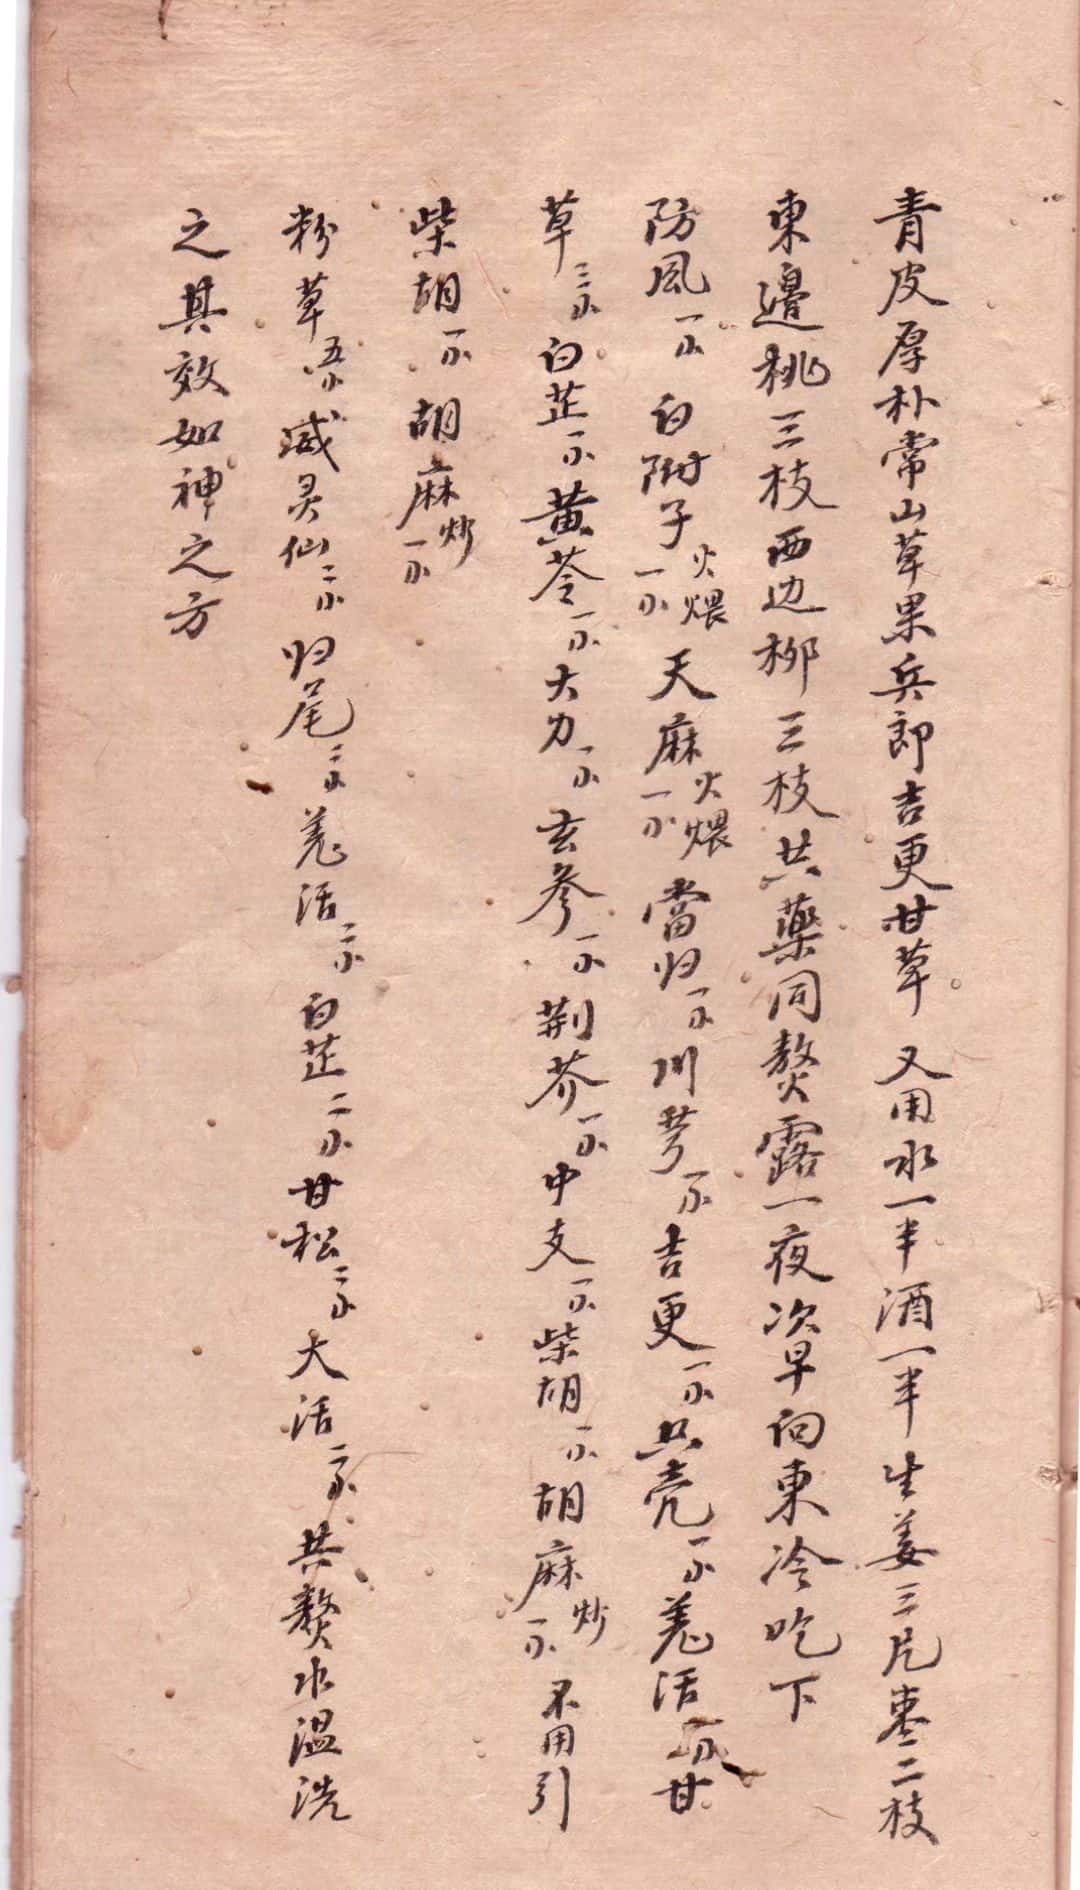 青皮厚朴常山草果兵郎吉更甘草 又用水一半酒一半生姜三片枣二枝
東邊桃三枝西边柳三枝共藥同熬露一夜次早向東冷吃下
防風一 白附子火煨一 天麻火煨一 當归一 川芎一 吉更一 只壳一 羗活一 甘
草三 白芷一 黄芩一 大力一 玄參一 荆芥一 中支一 柴胡一 胡麻炒一 不用引
柴胡一 胡麻炒一
粉草五 威灵仙二 归尾二 羗活二 白芷二 甘松二 大活二 共熬水温洗
之其效如神之方